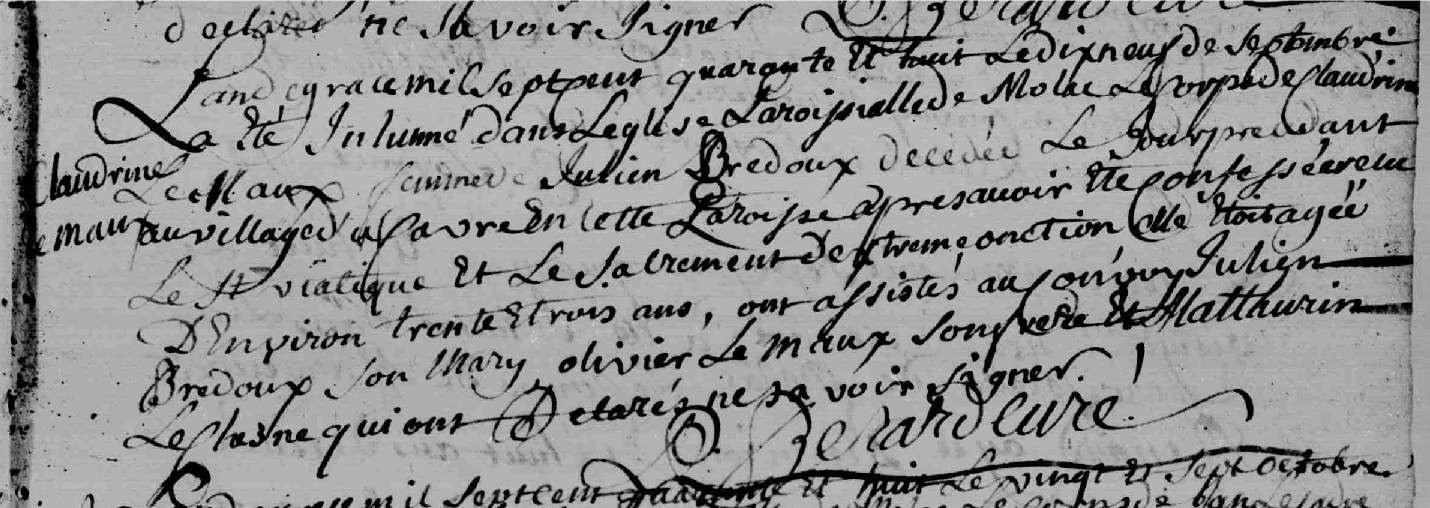 declarés ne savoir signer
L'an de grace mil sept cent quarante et huit Le dix neuf de septembre
a été Inhumé dans L'eglise Paroissialle de Molac Le Corps de Claudrine
Claudrine
Le Maux femme de Julien Bredoux decedée Le Jour precedant
Le maux
au village d' en cette Paroisse apres avoir été Confessée receu
Le St viatique et Le sacrement d'extreme onction elle étoit agée
D'Environ trente et trois ans, ont assistés au Convoy Julien
Bredoux son Mary olivier Le maux son frere et Mathurin
qui ont Declarés ne savoir signer.
Gerard Curé.
mil sept cent quarante et huit Le vingt et sept octobre
Le Corps de